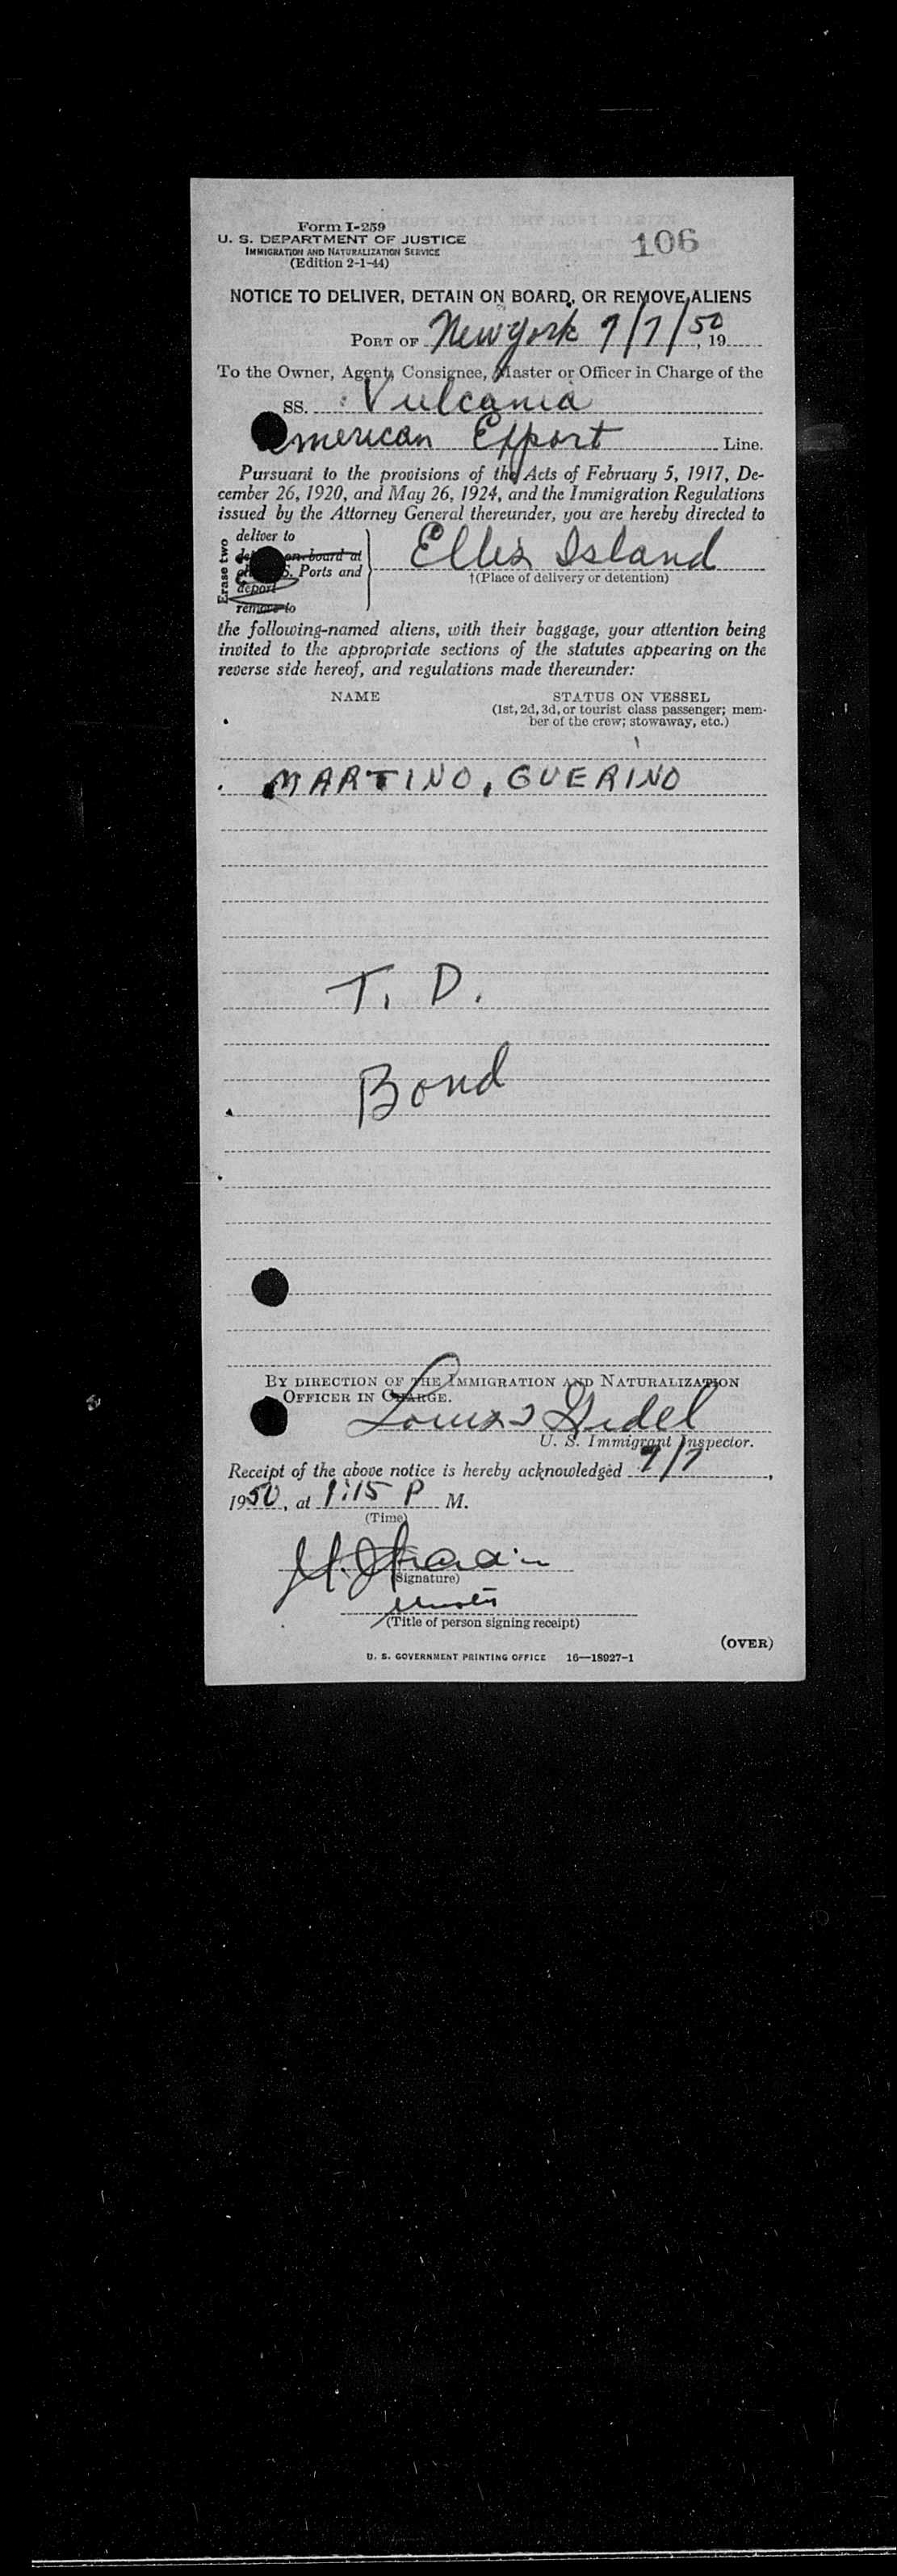 Form I-259
U. S. DEPARTMENT OF JUSTICE
IMMIGRATION AND NATURALIZATION SERVICE
(Edition 2-1-44)
106
NOTICE TO DELIVER, DETAIN ON BOARD, OR REMOVE ALIENS
PORT OF New York 7/7/50, 19
To the Owner, Agent, Consignee, Master or Officer in Charge of the
SS. Vulcania
American Export Line.
Pursuant to the provisions of the Acts of February 5, 1917, De-
cember 26, 1920, and May 26, 1924, and the Immigration Regulations
issued by the Attorney General thereunder, you are hereby directed to
Erase two
deliver to
on board at
S. Ports and
deport
remove to
Ellis Island
†(Place of delivery or detention)
the following-named aliens, with their baggage, your attention being
invited to the appropriate sections of the statutes appearing on the
reverse side hereof, and regulations made thereunder:
NAME STATUS ON VESSEL
(1st, 2d, 3d, or tourist class passenger; mem-
ber of the crew; stowaway, etc.)
MARTINO, GUERINO
T. D.
Bond
BY DIRECTION OF THE IMMIGRATION AND NATURALIZATION
OFFICER IN CHARGE.
Louis
U. S. Immigrant Inspector.
Receipt of the above notice is hereby acknowledged 7/7,
1950, at 1:15 P M.
(Time)
(Signature)
(Title of person signing receipt)
(OVER)
U. S. GOVERNMENT PRINTING OFFICE 16—18927-1